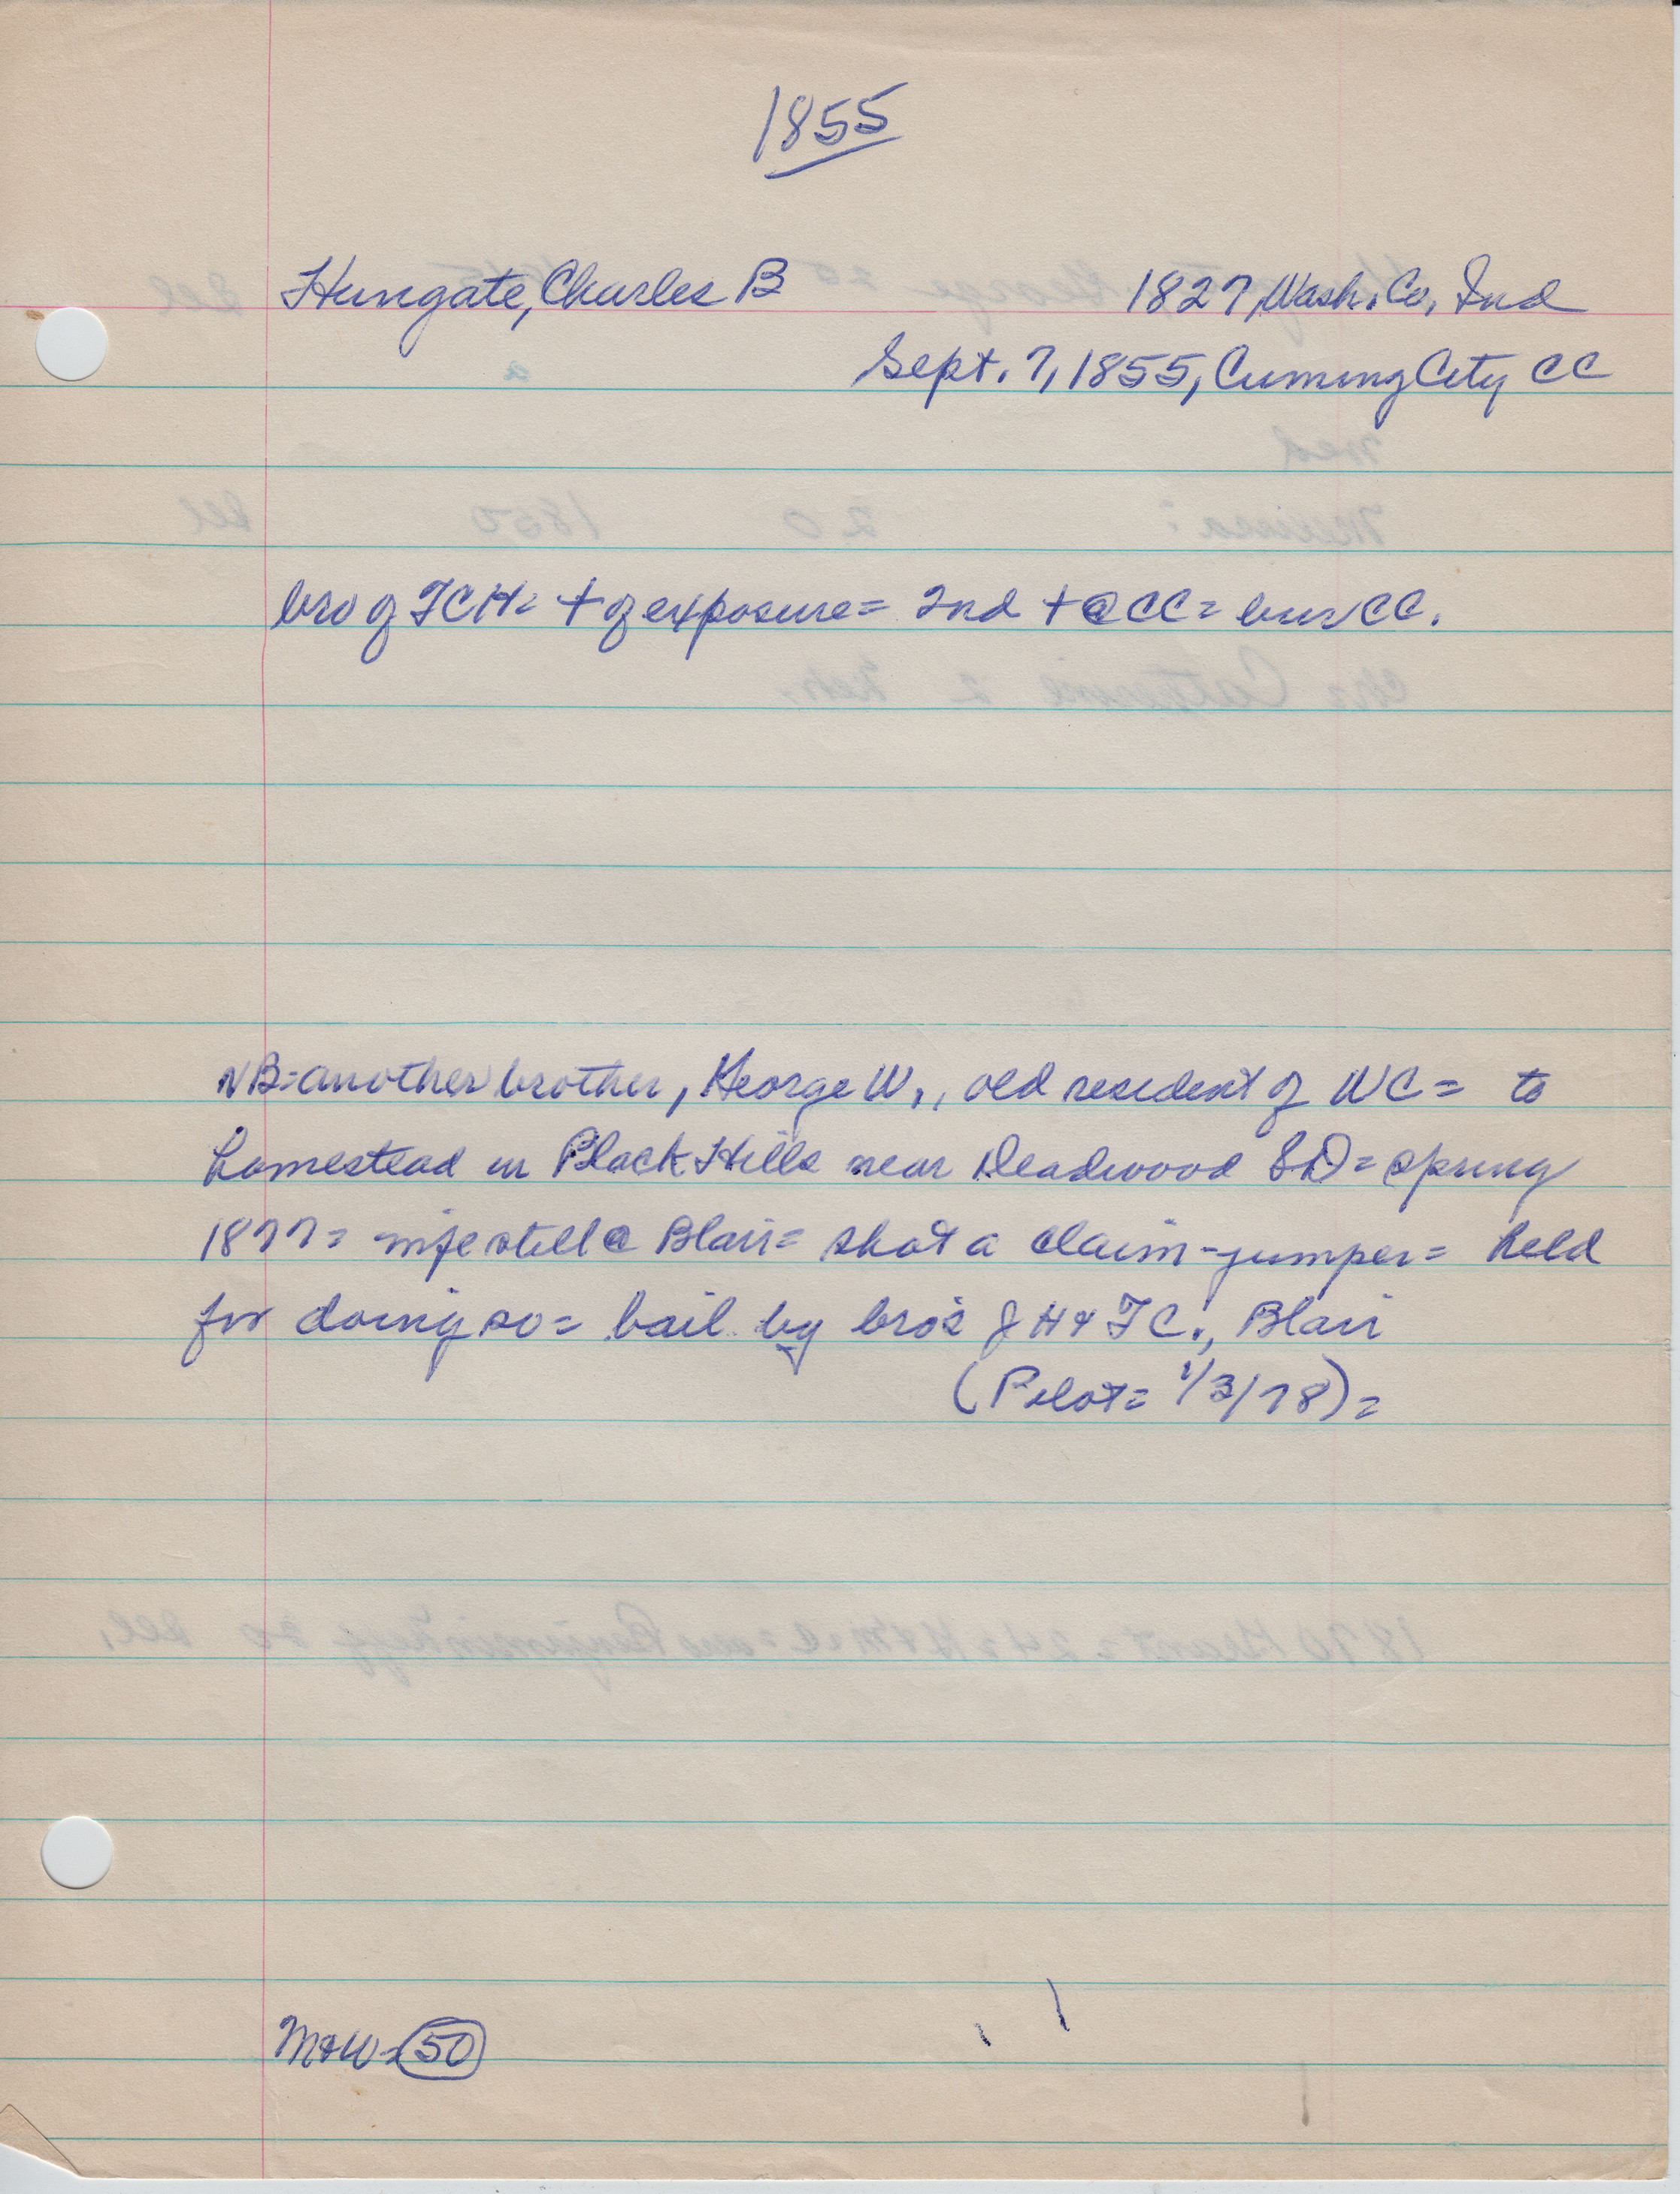 1855
Hungate, Charles B 1827, Wash. Co, Ind
Sept. 7, 1855, Cuming City CC
bro of TCH= + of exposure= 2nd + @ CC= bur CC.
NB= another brother, George W., old resident of WC= to
homestead in Black Hills near Deadwood SD= spring
1877= wife still @ Blair= shot a claim-jumper= held
for doing so= bail by bro's JH & TC., Blair
(Pilot= 1/3/78)=
M&W= 50